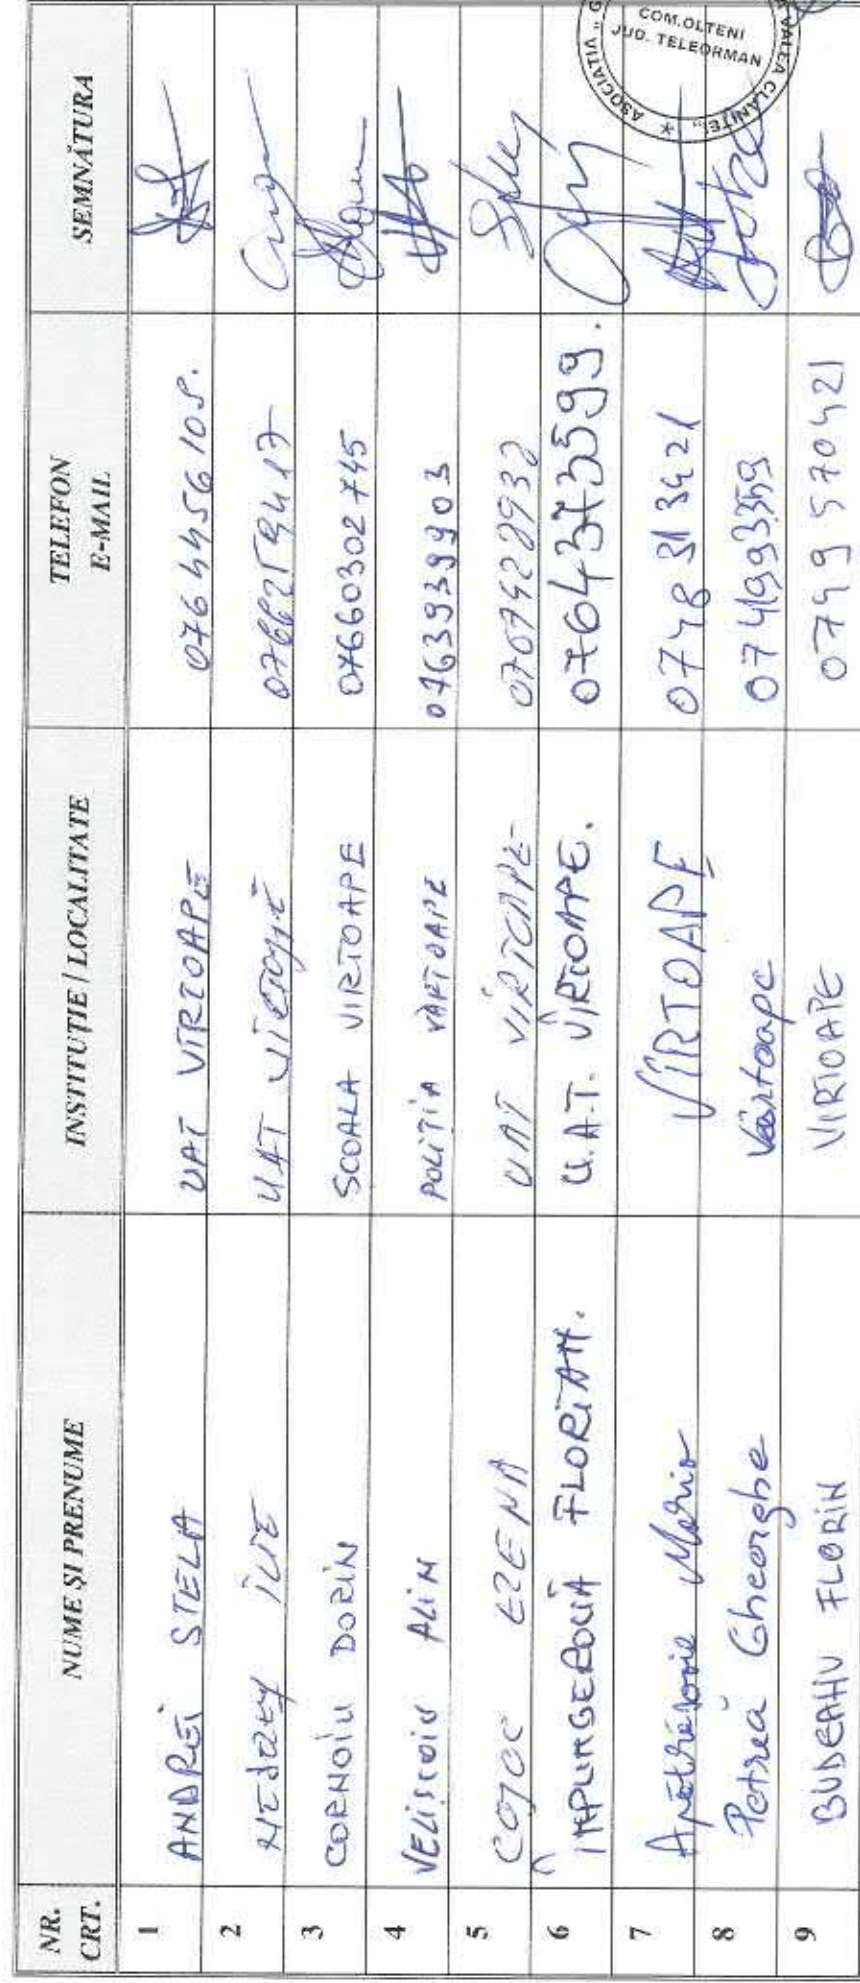 NR. CRT. NUME ȘI PRENUME INSTITUȚIE / LOCALITATE TELEFON E-MAIL SEMNĂTURA
1 ANDREI STELA UAT VIRTOAPE 0764456108.
2 ILIE UAT
3 CORNOIU DORIN SCOALA VIRTOAPE 07660302745
4 VELISCOIU ALIN POLITIA VARTOAPE 0763939903
5 COJOC ELENA UAT VIRTOAPE 0767428932
6 FLORIAN. U.A.T. VIRTOAPE. 0764373599.
7 VÎRTOAPE 0748313421
8 Petrea Gheorghe Vartoape 0749993359
9 BUDEANU FLORIN VIRTOAPE 0749570421
COM. OLTENI
JUD. TELEORMAN